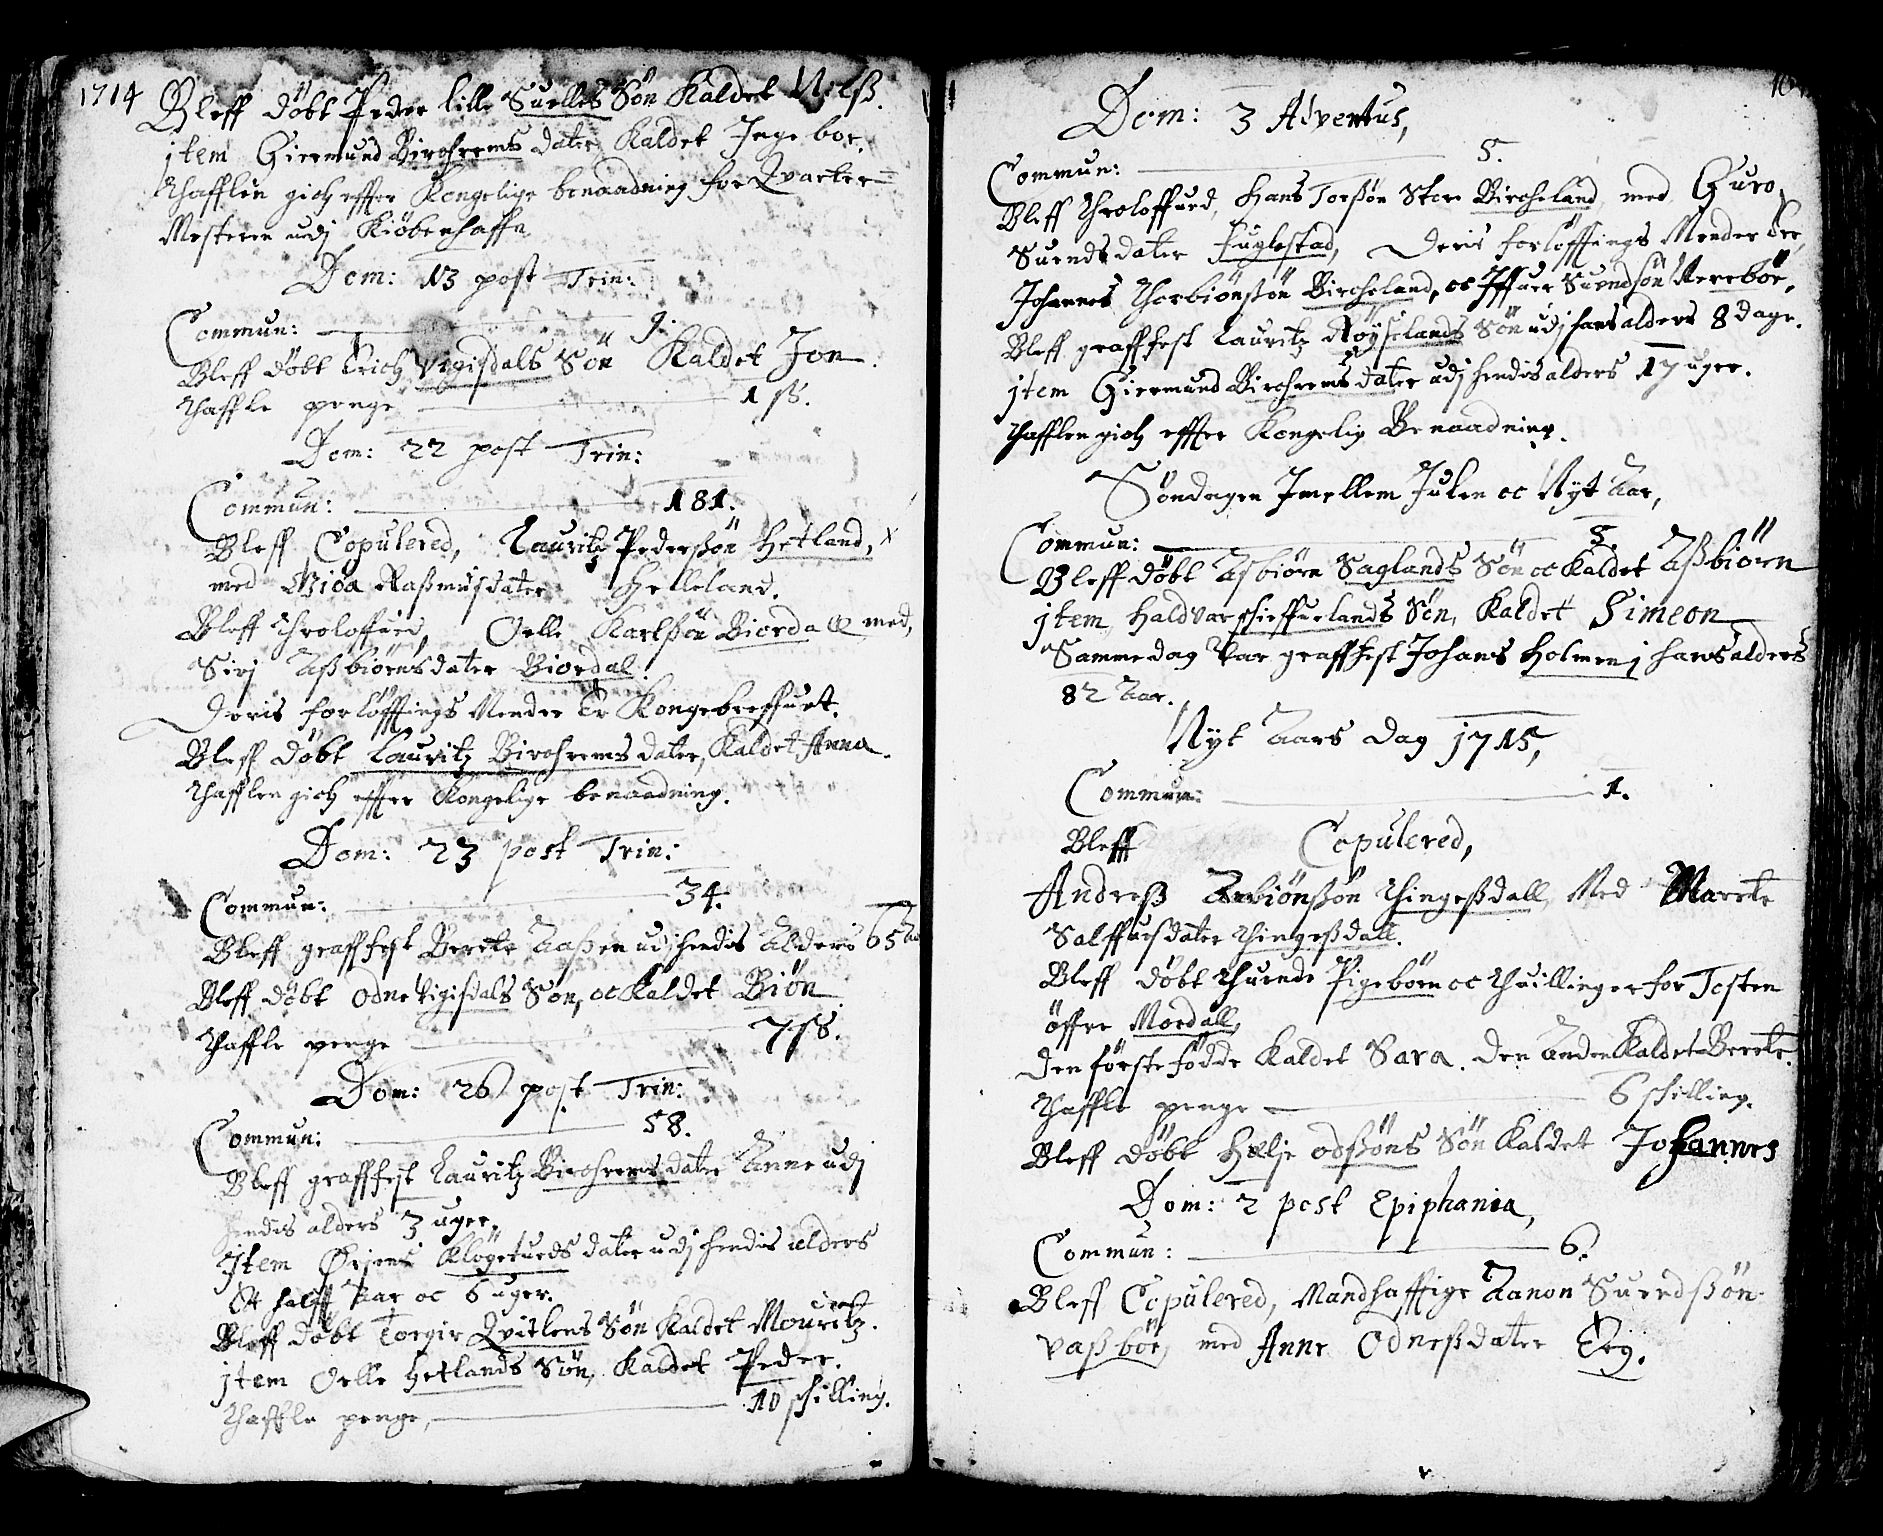 1714 Bleff döbt Peder lille Suelles Sön Kaldet Nilß.
jtem Giermund Birchrems dater Kaldet Jngebor.
Thafflen gich effter Kongelige benaadning for Qvarter=
Mesteren udj Kiöbenhaffn
Dom: 13 post Trin:
Commun: 9.
Bleff döbt Erich Vigisdals Sön Kaldet Jon.
Thaffle penge 1 ß.
Dom: 22 post Trin:
Commun: 181.
Bleff Copulered, Lauritz Pederßön Hetland, x
med Raßmusdater Helleland.
Bleff Throloffued, Oelle Karlßön Biordall med,
Sirj Aßbiörnsdater Biordal.
Deris forlöffings Mender Er Kongebreffuet.
Bleff döbt Lauritz Birchrems dater, Kaldet Anna.
Thafflen gich effter Kongelige benaadning.
Dom: 23 post Trin:
Commun: 34.
Bleff graffest Berete Aaßen udj hendis Alders 65 Aar
Bleff döbt Odne Vigisdals Sön, oc Kaldet Biön
Thaffle penge 7 ß.
Dom: 26 post Trin:
Commun: 58.
Bleff graffest Lauritz Birchrems dater Anne udj
hendis alders 3 uger.
Jtem Örjens Klögetueds dater udj hendis alders
Et halff Aar oc 6 uger.
Bleff döbt Torgir Qvitlens Sön Kaldet Mouritz.
jtem Oelle Hetlands Sön, Kaldet Peder.
Thaffle penge, 10 skilling.
10
Dom: 3 Adventus,
Commun: 5.
Bleff Throloffued, Hans Torßön Store Bircheland med Guro
Suendsdater Fuglestad, Deris forlöffings Mender Er,
Johannes Thorbiönßön Bircheland, oc Jffuer Suendsön Nereböe,
Bleff graffest Lauritz Röyselands Sön udj hans alders 8 dage.
jtem Giermund Birchrems dater udj hendis alders 17 uger.
Thafflen gich effter Kongelig Benaadning.
Söndagen Jmellem Julen oc Nyt Aar,
Commun: 3.
Bleff döbt Aßbiörn Saglands Sön oc Kaldet Aßbiörn
jtem Haldvar Skieffuelands Sön, Kaldet Simeon
Samme dag Var graffest Johans Holmen j hans alders
82 Aar.
Nyt Aars dag 1715,
Commun: 1.
Bleff Copulered,
Andreß Arbiönßön Thingeßdall, Med Marete
Salffuesdater Thingeßdall.
Bleff döbt Thuende Pigebörn oc Thuillinger for Tosten
öffre Mordall,
Den förste födde Kaldet Sara. Den Anden Kaldet Berete.
Thaffle penge 6 skilling.
Bleff döbt Helje Odßöns Sön Kaldet Johannes
Dom: 2 post Epiphania,
Commun: 6.
Bleff Copulered, Mandhafftige Aanon Suendßön
Vaßböe, med Anne Odneßdater Eeg.